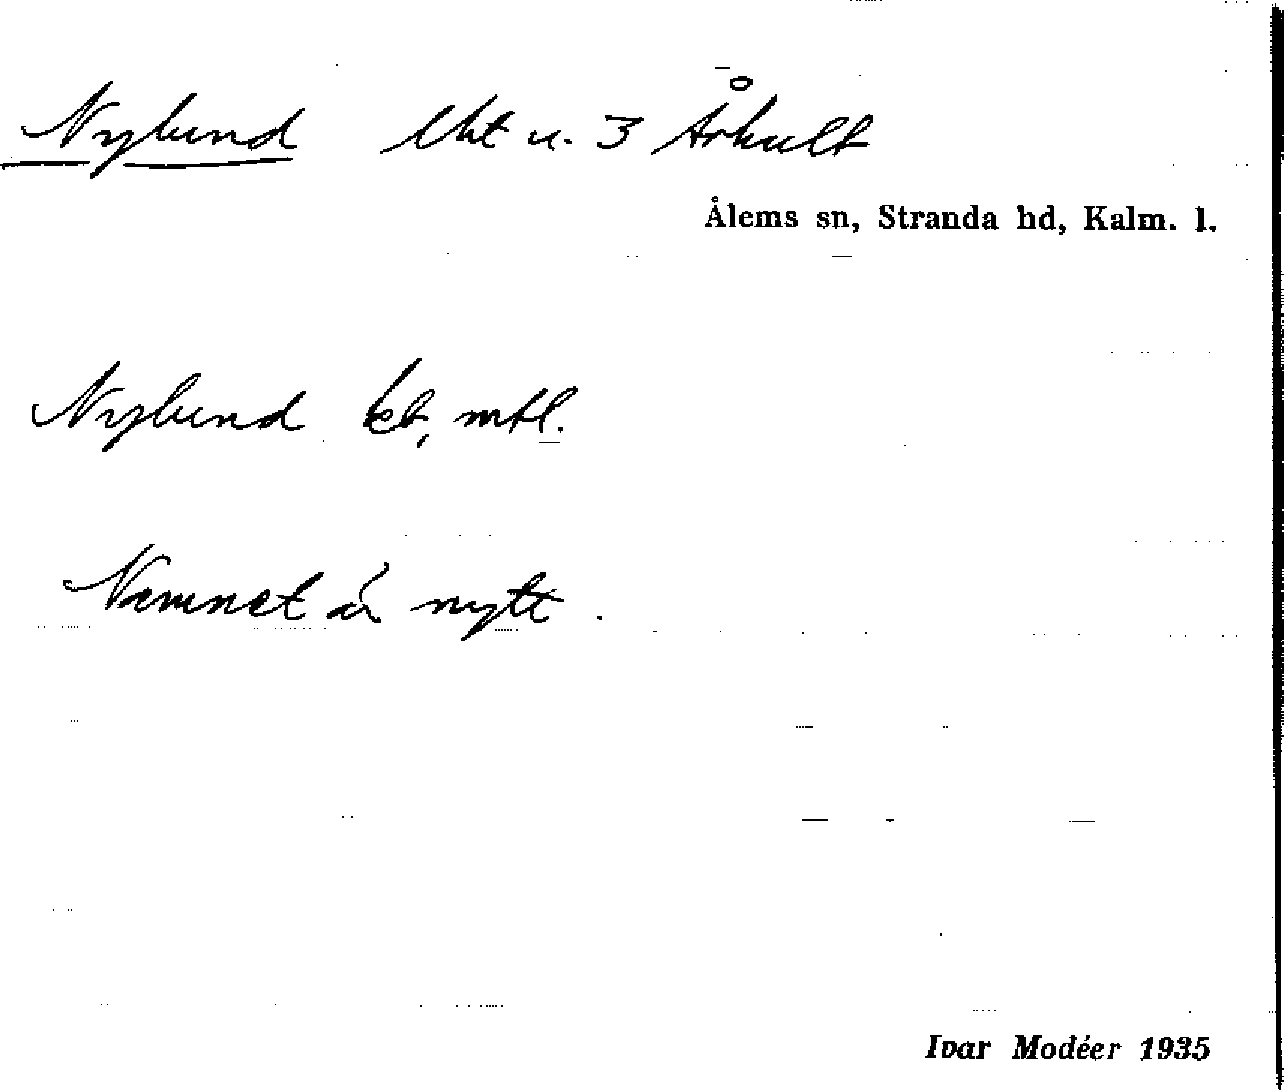 Nylund lht u. 3 Århult
Ålems sn, Stranda hd, Kalm. l.
Nylund kb, mtl.
Namnet är nytt.
Ivar Modéer 1935